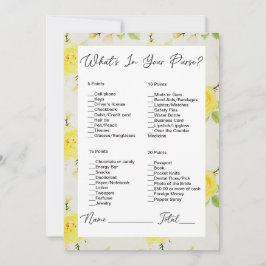 What's In Your Purse?
5 Points
__Cell phone
__Keys
__Driver's license
__Checkbook
__Debit/Credit card
__Hair tie
__Pen/Pencil
__Tissues
__Glasses/Sunglasses
10 Points
__Mints or Gum
__Band-Aids/Bandages
__Lighter/Matches
__Safety Pins
__Water Bottle
__Business Card
__Lipstick/Lipgloss
__Over the Counter
Medicine
15 Points
__Chocolate or candy
__Energy Bar
__Snacks
__Deodorant
__Paper/Notebook
__Lotion
__Tweezers
__Perfume
__Jewelry
20 Points
__Passport
__Book
__Pocket Knife
__Dental Floss/Pick
__Photo of the Bride
__$50.00 or more of cash
__Foreign Money
__Pepper Spray
Name________ Total____